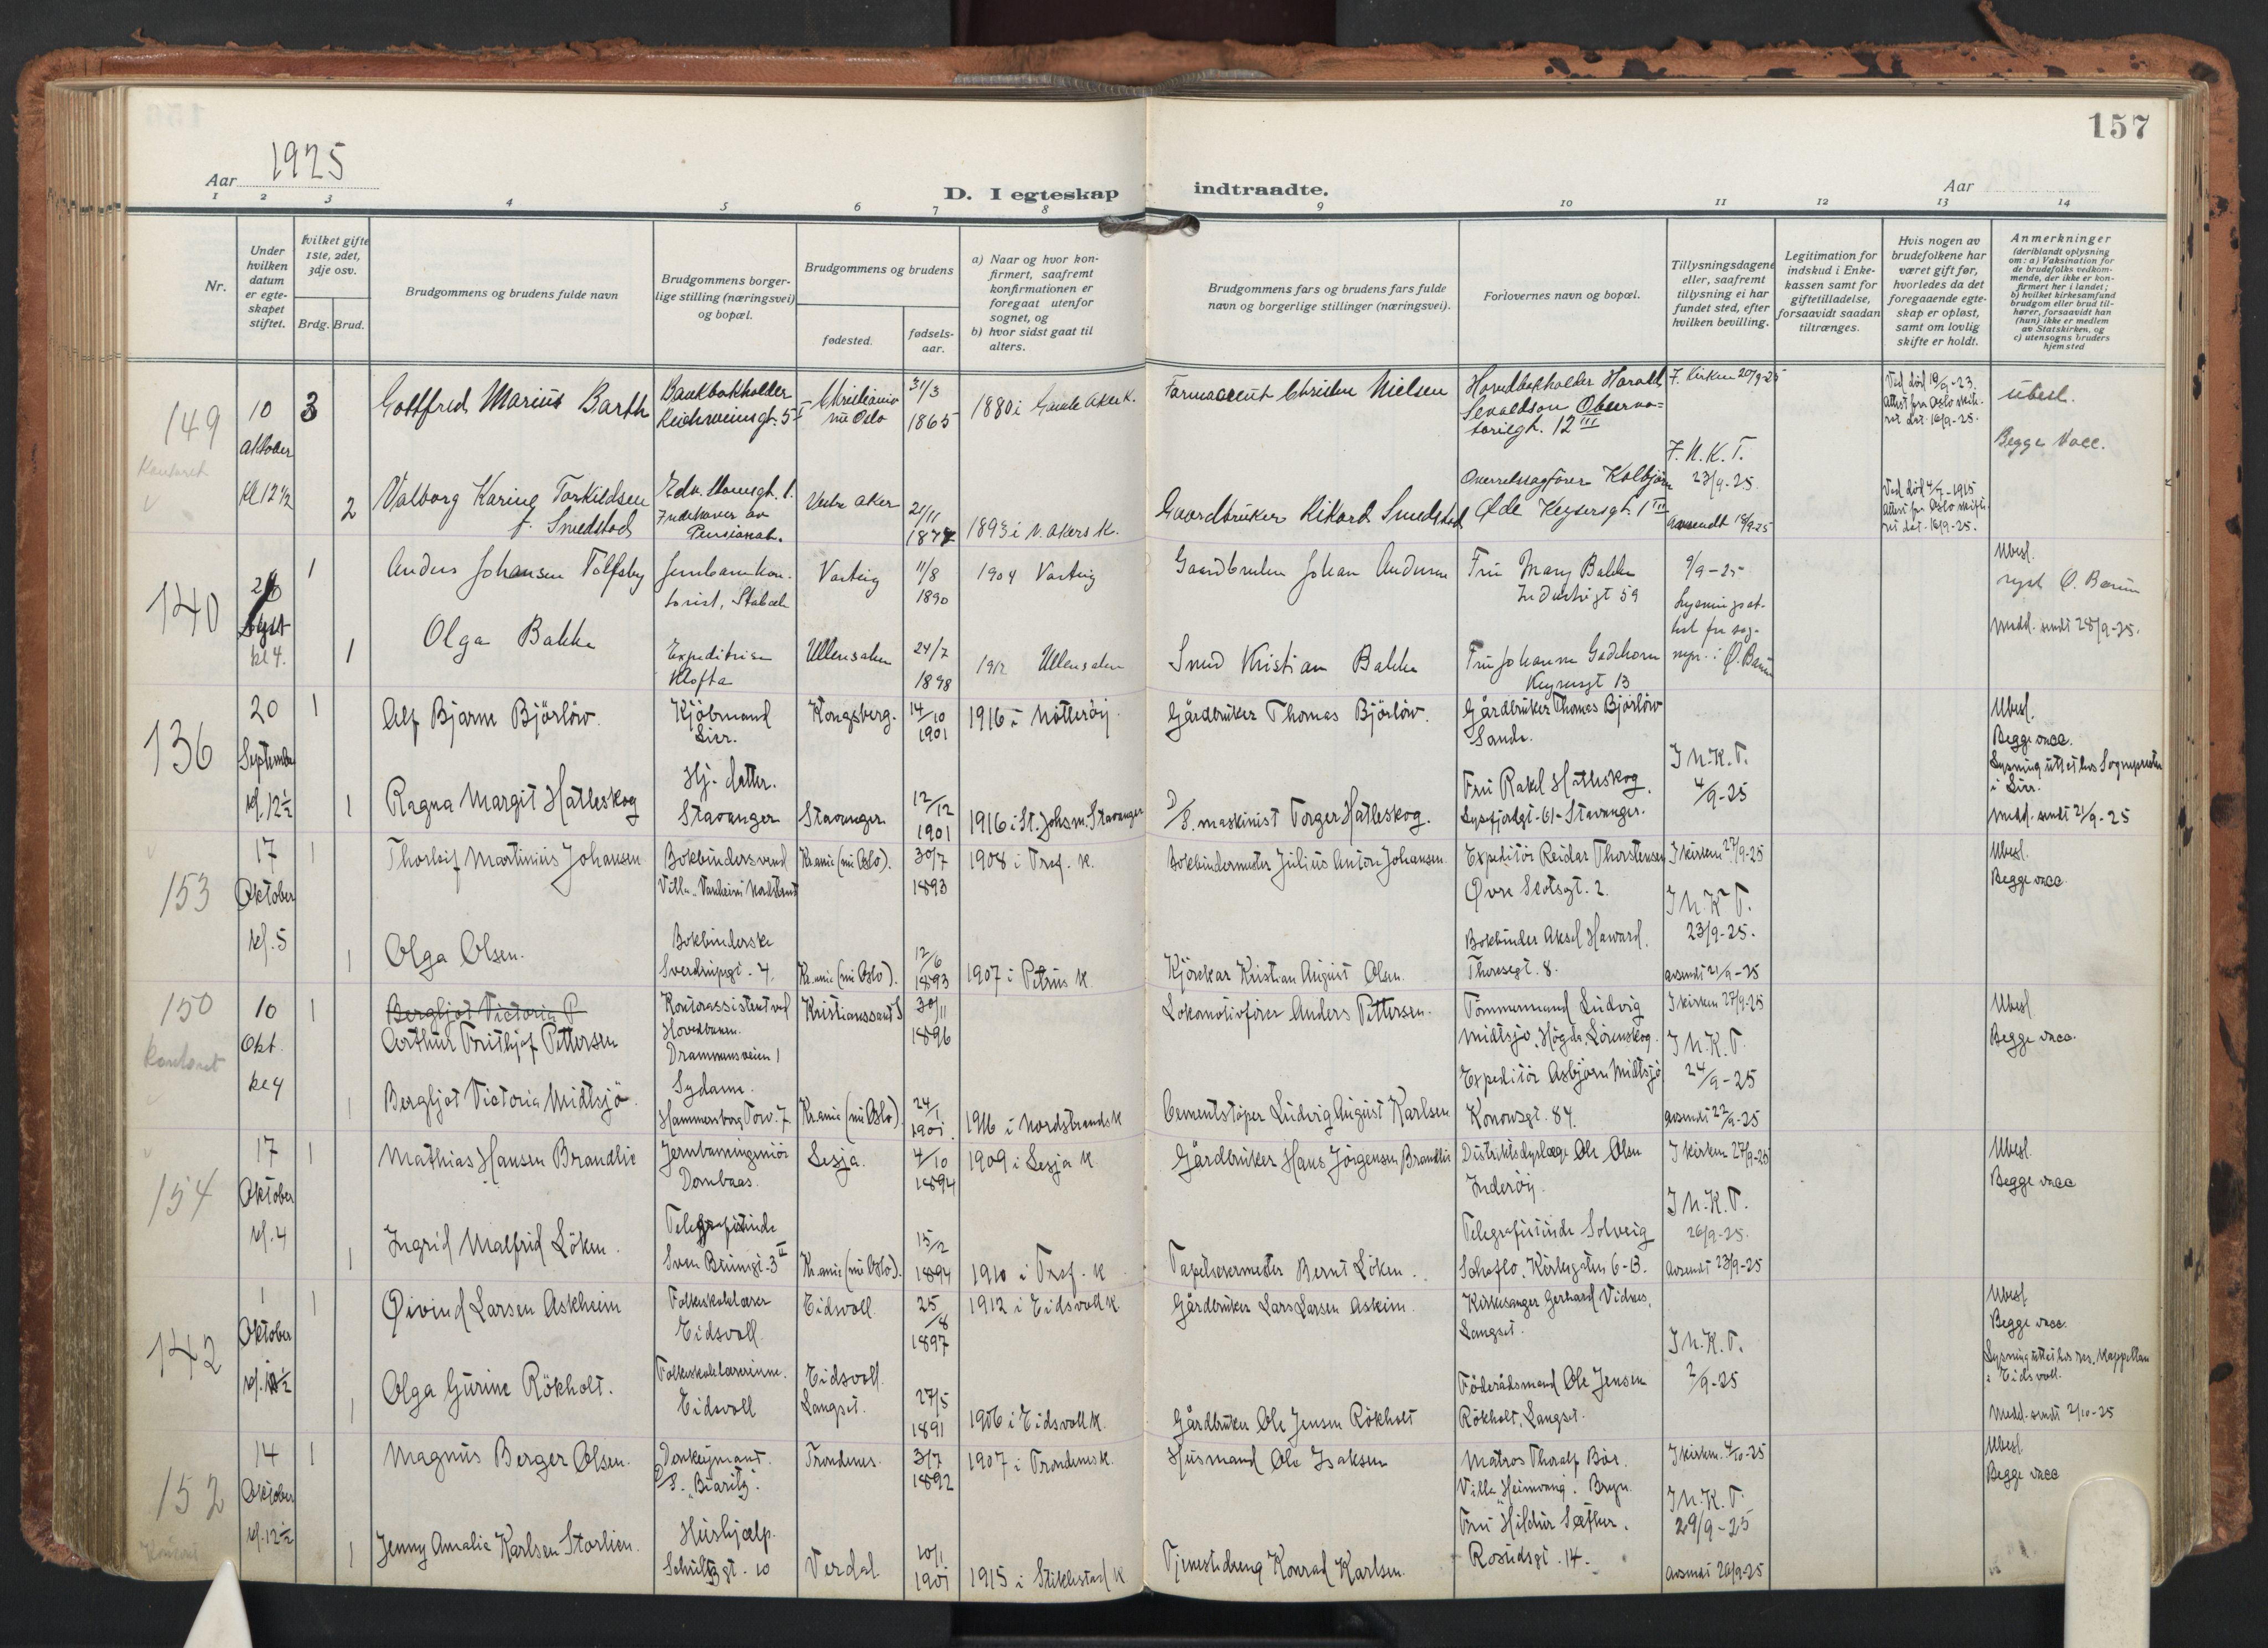 157
Aar 1925
D. I egteskap indtraadte.
Aar
1 2 3 4 5 6 7 8 9 10 11 12 13 14
Nr.
Under hvilken datum er egte-skapet stiftet.
hvilket gifte 1ste, 2det, 3dje osv.
Brdg. Brud.
Brudgommens og brudens fulde navn
Brudgommens borger-lige stilling (næringsvei) og bopæl.
Brudgommens og brudens
fødested.
fødsels-aar.
a) Naar og hvor kon-firmert, saafremt konfirmationen er foregaat utenfor sognet, og
b) hvor sidst gaat til alters.
Brudgommens fars og brudens fars fulde navn og borgerlige stillinger (næringsvei).
Forlovernes navn og bopæl.
Tillysningsdagene eller, saafremt tillysning ei har fundet sted, efter hvilken bevilling.
Legitimation for indskud i Enke-kassen samt for giftetilladelse, forsaavidt saadan tiltrænges.
Hvis nogen av brudefolkene har været gift før, hvorledes da det foregaaende egte-skap er opløst, samt om lovlig skifte er holdt.
Anmerkninger (deriblandt oplysning om: a) Vaksination for de brudefolks vedkom-mende, der ikke er kon-firmert her i landet; b) hvilket kirkesamfund brudgom eller brud til-hører, forsaavidt han (hun) ikke er medlem av Statskirken, og c) utensogns bruders hjemsted
149
10 oktober kl 12½
3
Gottfred Marius Barth
Bankbokholder
Christiania nu Oslo
31/3 1865
1880 i Gamle Aker K.
Farmaceut Christen Nielsen
Hovedbokholder Harald Sevaldson Observa=toriegt. 12 III
I. Kirken 20/9-25
Ved död 19/9-23. Attest fra Oslo skifte-ret dat. 16/9-25.
ubesl.
Begge vacc.
2
Valborg Karine Torkildsen f. Smedstad
Edv. Stormsgt. 1. Indehaver av Pensionat.
Vestre Aker
21/11 1877
1893 i V. Akers K.
Gaardbruker Rikard Smedstad
Overretssagfører Kolbjørn Øde Keysersgt. 1 III
I. N. K. T. 23/9-25.
avsendt 18/9-25
Ved död 4/7-1915 attest fra Oslo skifte-ret dat. 16/9-25.
140
Sept kl 4.
1
Anders Johansen Tolfsby
Jernbanekon-torist, Stabæk
Varteig
11/8 1890
1904 Varteig
Gaardbruker Johan Andersen
Fru Mary Bakke Industrigt 59
9/9-25 Lysningsat-test fra sog-nepr. i Ø. Bærum
Ubesl.
Ø. Bærum
Medd. sendt 28/9-25.
1
Olga Bakke
Expeditrise Kløfta
Ullensaker
24/7 1898
1912 Ullensaker
Smed Kristian Bakke
Fru Johanne Keysersgt 13
136
20 September kl. 12½
1
Alf Bjarne Björlöw.
Kjöbmand Lier.
Kongsberg.
14/10 1901
1916 i Nötteröy.
Gårdbruker Thomas Björlöw.
Gårdbruker Thomas Björlöw Sande.
I N. K. T. 4/9-25
Ubesl.
Begge vacc.
Lysning uttat hos Sogneprest i Lier.
Medd. sendt 21/9-25
1
Ragna Margit Hatleskog
Hj. datter. Stavanger
Stavanger
12/12 1901
1916 i St. Johs. m. Stavanger
D/S. maskinist Torger Hatleskog.
Fru Rakel Hatleskog. Lysefjordgt-61-Stavanger.
153
17 Oktober kl. 5
1
Thorleif Martinius Johansen
Bokbindersvend Nordstrand
Kr.ania (nu Oslo).
30/7 1893
1908 i Tref. K.
Bokbindermester Julius Anton Johansen.
Expeditör Reidar Thorstensen Øvre Slotsgt. 2.
I kirken 27/9-25
I N. K. T. 23/9-25.
Ubesl.
Begge vacc.
1
Olga Olsen.
Bokbinderske Sverdrupsgt. 4.
Kr.ania (nu Oslo).
12/6 1893
1907 i Petrus K.
Kjörekar Kristian August Olsen.
Bokbinder Aksel Haward. Thoresegt. 8.
avsendt 21/9-25
150
kontoret
10 Okt. kl 4
1
Bergljot Victoria P
Arthur Fritjof Pettersen
Kontorassistent ved Hovedbanen. Drammensveien 1
Kristianssand S
30/11 1896
Lokomotivfører Anders Pettersen.
Tömmermand Ludvig Midtsjö, Högda, Lörenskog.
I kirken 27/9-25
I N. K. T. 24/9-25
Ubesl
Begge vacc.
1
Bergljot Victoria Midtsjö
Sydame. Hammersborg Torv. 7
Kr.ania (nu Oslo).
24/1 1901.
1916 i Nordstrands K
Cementstöper Ludvig August Karlsen
Expeditör Asbjörn Midtsjö Konowsgt. 84.
avsendt 22/9-25
154
17 Oktober kl. 4
1
Mathias Hansen Brandlie
Jernbaneingeniör Dombaas.
Lesja.
4/10 1894
1909 i Lesja K.
Gårdbruker Hans Jörgensen Brandlie
Distriktsdyrlæge Ole Olsen Inderöy.
I kirken 27/9-25
I N. K. T. 26/9-25.
Ubesl.
Begge vacc
1
Ingrid Malfrid Löken.
Telegrafistinde Sven Bruunsgt-3 II
Kr.ania (nu Oslo).
15/2 1894
1910 i Tref. K
Tapetserermester Bernt Löken.
Telegrafistinde Solveig Schaflo, Kirkegaten 6-B.
Avsendt 23/9-25
142
1 Oktober
1
Øivind Larsen Askheim
Folkeskolelærer Eidsvoll.
Eidsvoll
25/8 1897
1912 i Eidsvoll K.
Gårdbruker Lars Larsen Askim.
Kirkesanger Gerhard Vidnes, Langset.
I N. K. T. 2/9-25
Ubesl
Begge vacc.
Lysning uttat hos res. Kappellan i Eidsvoll.
Medd. sendt 2/10-25
1
Olga Gurine Rökholt.
Folkeskolelærerinne. Eidsvoll
Eidsvoll. Langset.
27/5 1891
1906 i Eidsvoll K.
Gårdbruker Ole Jensen Rökholt
Föderådsmand Ole Jensen Rökholt, Langset.
152
14 Oktober kl. 12½
1
Magnus Berger Olsen.
Donkeymand. D/S. "Biaritz".
Trondenes.
3/7 1892
1907 i Trondenes K.
Husmand Ole Isaksen
Matros Thoralf Bör. Villa "Heimvang". Bryn.
I kirken. 4/10-25
I N. K. T. 29/9-25
Ubesl.
Begge vacc
1
Jenny Amalie Karlsen Storlien.
Hushjælp. Schultzgt. 10
Verdal
10/1 1901
1915 i Stiklestad K
Tjenestedreng Konrad Karlsen.
Fru Hildur Sæther. Rosteds gt. 14.
Avsendt 26/9-25